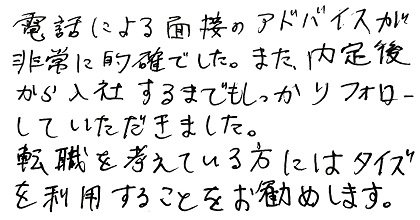 電話による面接のアドバイスが
非常に的確でした。また、内定後
から入社するまでもしっかりフォロー
していただきました。
転職を考えている方にはタイズ
を利用することをお勧めします。